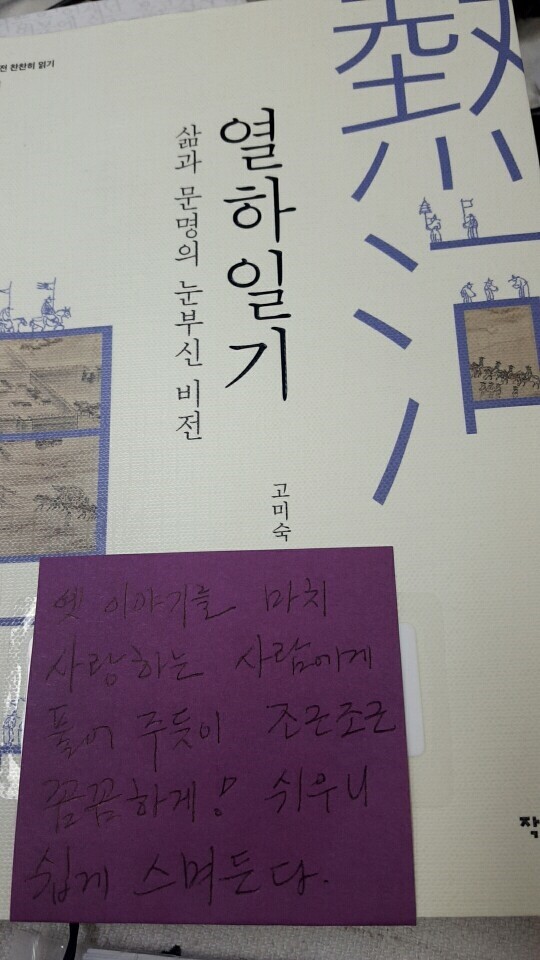 전 찬찬히 읽기
熱河
열하일기
삶과 문명의 눈부신 비전
고미숙
옛 이야기를 마치
사랑하는 사람에게
풀어 주듯이 조근조근
꼼꼼하게! 쉬우니
쉽게 스며든다.
작